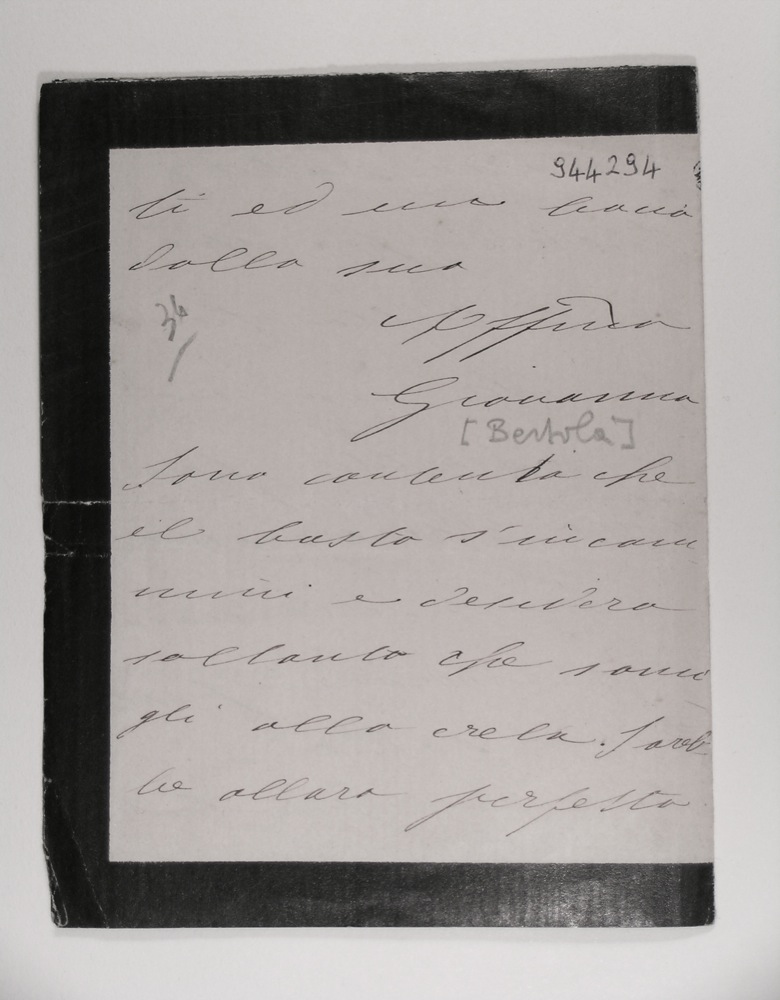 944294
ti ed un bacio
dalla sua
Affma
Giovanna
[Bertola]
34
Sono contenta che
il busto s'incam
mini e desidero
soltanto che somi
gli alla creta. Sareb
be allora perfetto